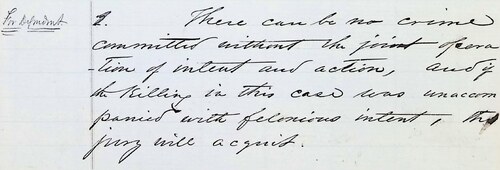 For Defendant
2. There can be no crime
committed without the joint opera
-tion of intent and action, and if
the Killing in this case was unaccom
panied with felonious intent, the
jury will acquit.